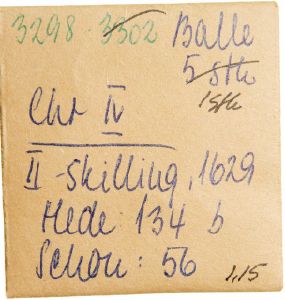 3298 3302 Balle
5 stk
1 stk
Chr IV
II skilling, 1629
Hede: 134 b
Schou: 56
1,15